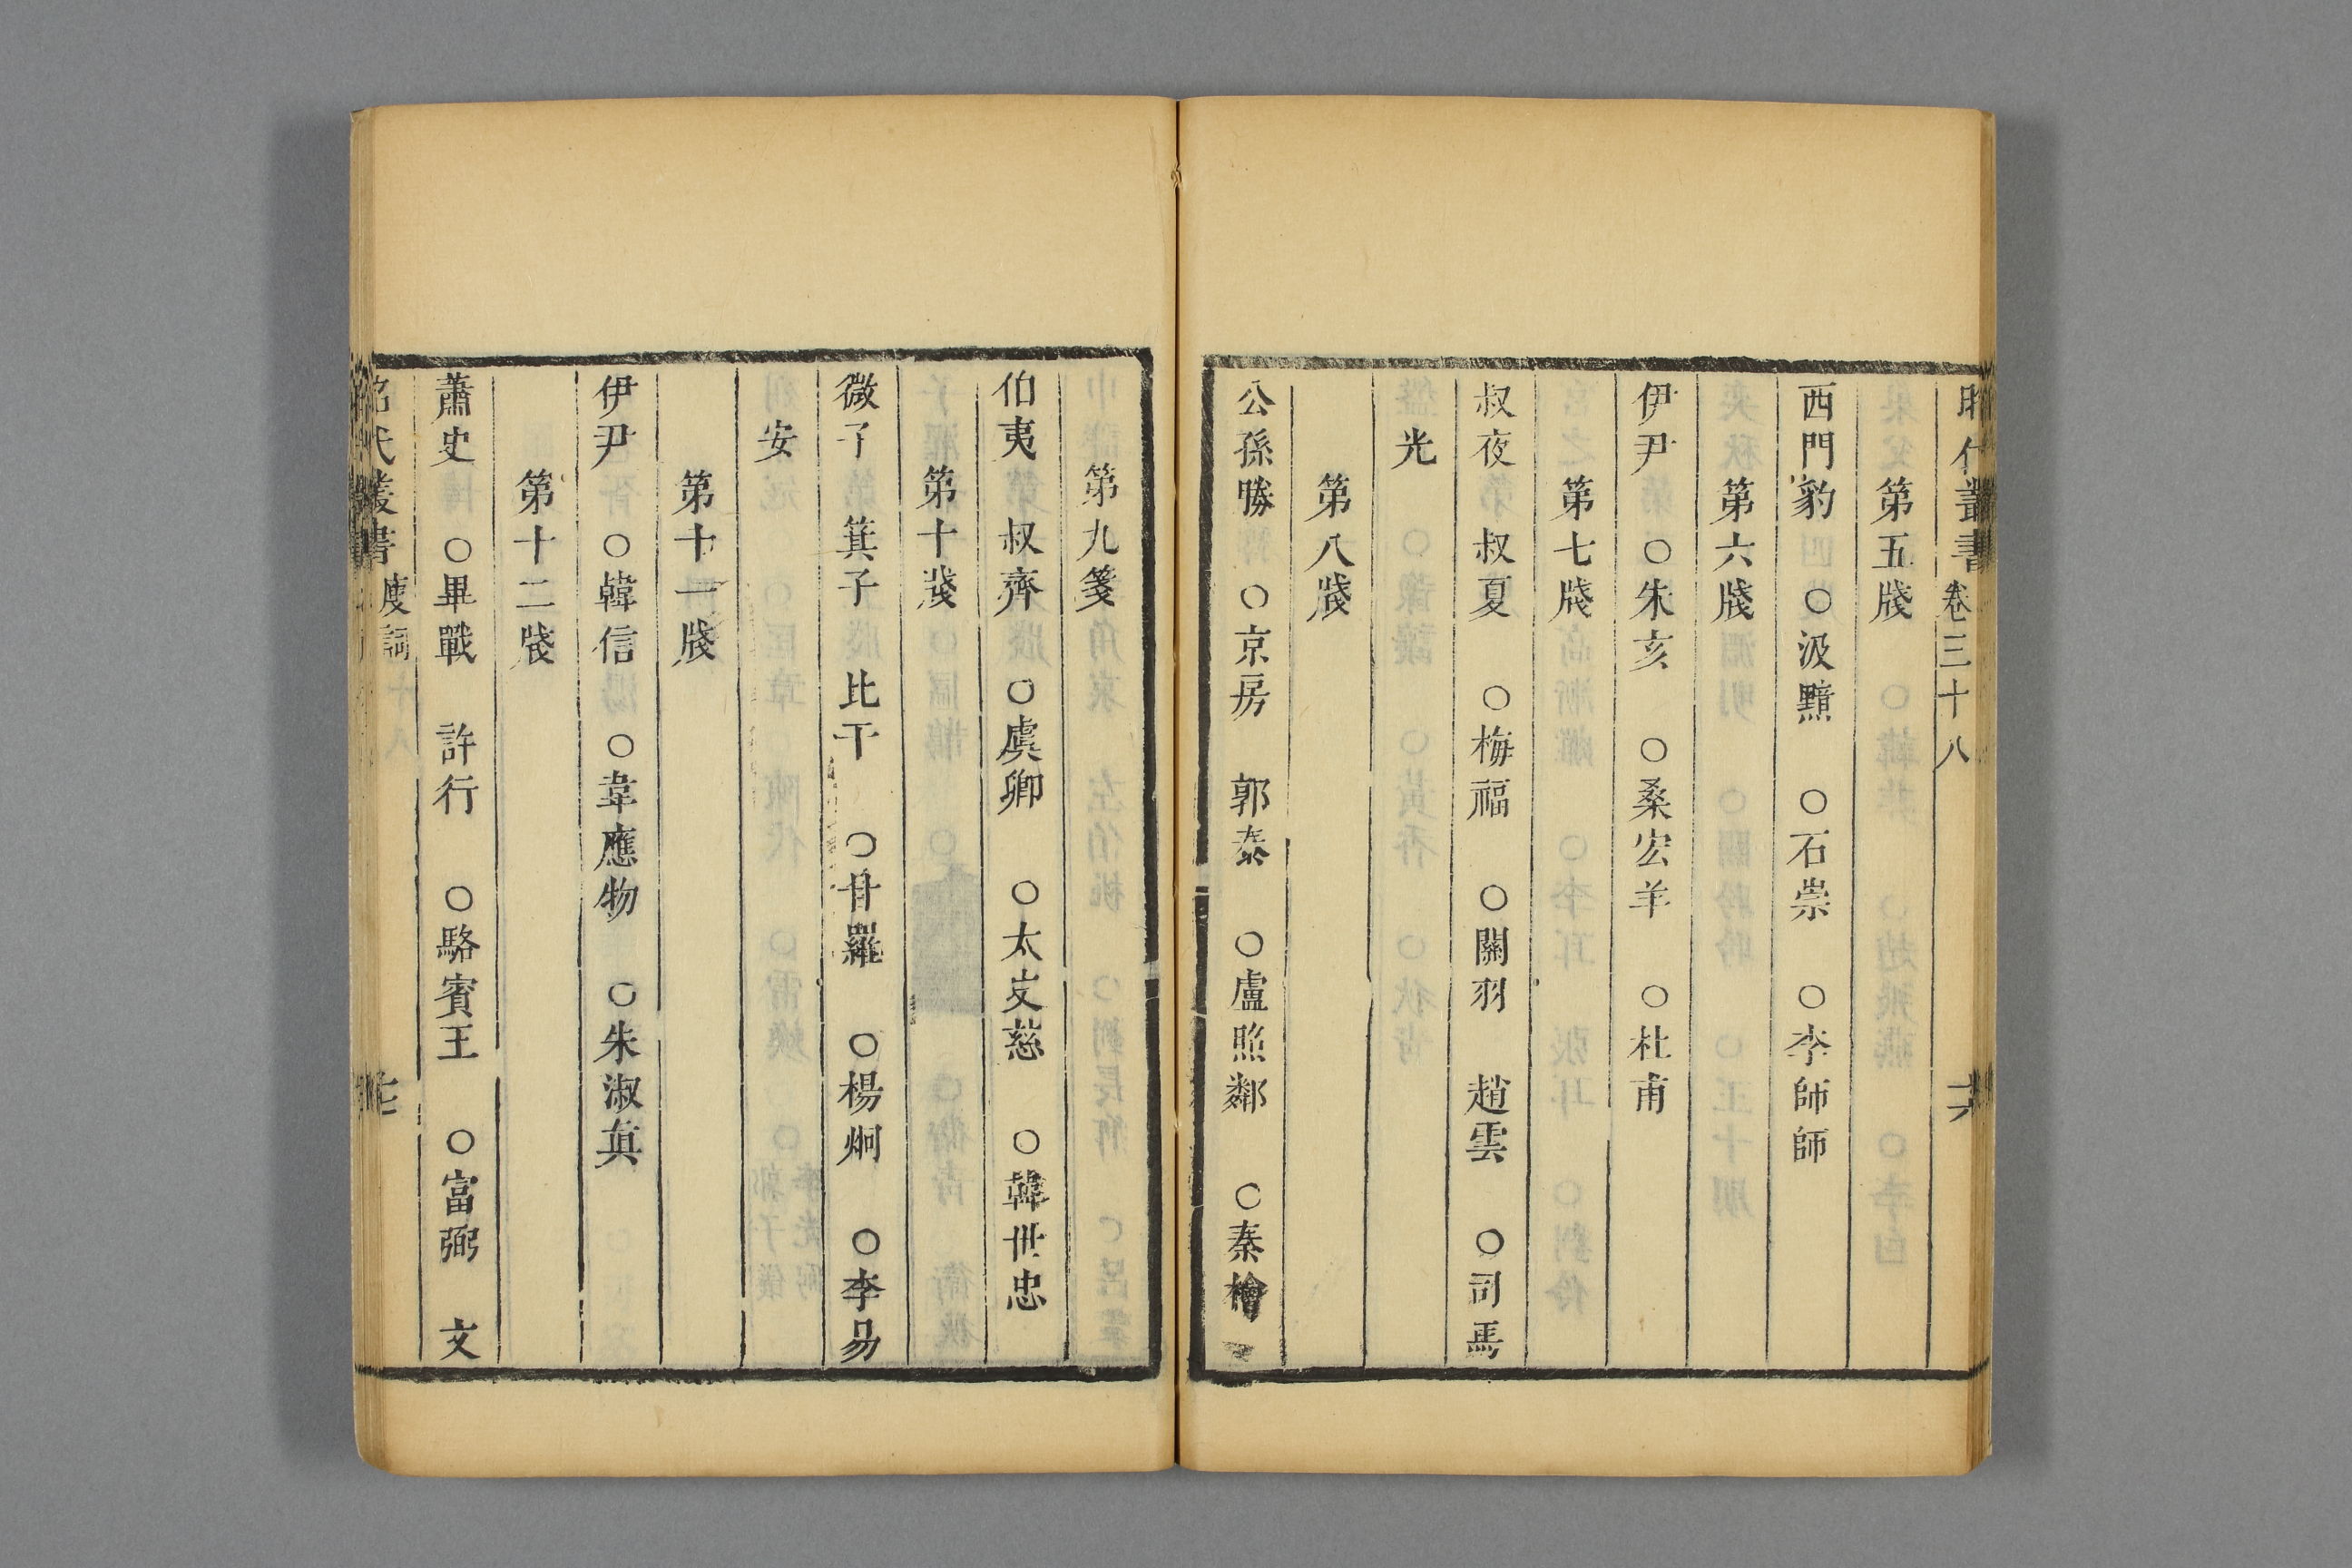 昭代叢書 卷三十八 六
第五牋
西門豹 ○汲黯 ○石崇 ○李師師
第六牋
伊尹 ○朱亥 ○桑宏羊 ○杜甫
第七牋
叔夜 叔夏 ○梅福 ○關羽 趙雲 ○司馬
光
第八牋
公孫勝 ○京房 郭泰 ○盧照鄰 ○秦檜
第九箋
伯夷 叔齊 ○虞卿 ○太史慈 ○韓世忠
第十牋
微子 箕子 比干 ○甘羅 ○楊炯 ○李易
安
第十一牋
伊尹 ○韓信 ○韋應物 ○朱淑真
第十二牋
蕭史 ○畢戰 許行 ○駱賓王 ○富弼 文
昭代叢書 廋詞 七